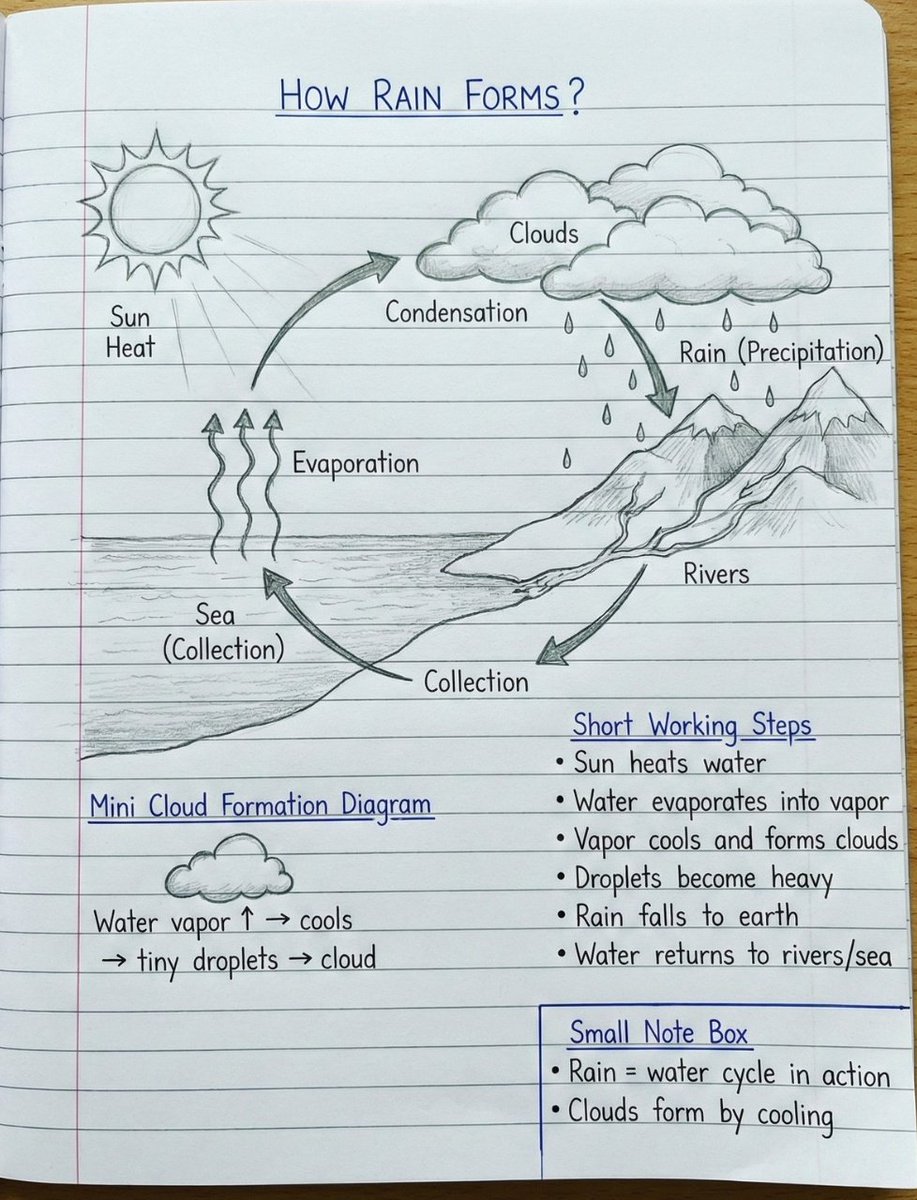 How Rain Forms?
Clouds
Sun
Heat
Condensation
Rain (Precipitation)
Evaporation
Rivers
Sea
(Collection)
Collection
Mini Cloud Formation Diagram
Water vapor ↑ → cools
→ tiny droplets → cloud
Short Working Steps
• Sun heats water
• Water evaporates into vapor
• Vapor cools and forms clouds
• Droplets become heavy
• Rain falls to earth
• Water returns to rivers/sea
Small Note Box
• Rain = water cycle in action
• Clouds form by cooling